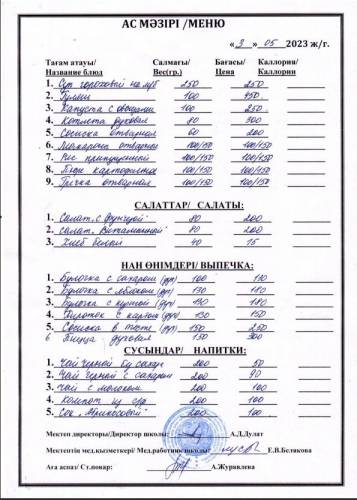 АС МӘЗІРІ /МЕНЮ
« 3 » 05 2023 ж/г.
Тағам атауы/ Салмағы/ Бағасы/ Каллория/
Название блюд Вес(гр.) Цена Каллории
1. Суп гороховый на м/б 250 250
2. 100 450
3. Капуста с овощами 100 250
4. Котлета духовая 80 300
5. Сосиска отварная 60 200
6. Макароны отварные 100/150 100/150
7. Рис припущенный 100/150 100/150
8. Пюре картофельное 100/150 100/150
9. Гречка отварная 100/150 100/150
САЛАТТАР/ САЛАТЫ:
1. Салат с фунчозой 80 200
2. Салат Витаминный 80 200
3. Хлеб белый 40 15
НАН ӨНІМДЕРІ/ ВЫПЕЧКА:
1. Булочка с сахаром (дух) 100 110
2. Булочка с яблоком (дух) 130 180
3. Булочка с курицей (дух) 130 180
4. Пирожок с картош (дух) 130 150
5. Сосиска в тесте (дух) 150 250
6 Пицца духовая 150 300
СУСЫНДАР/ НАПИТКИ:
1. Чай черный б/у сахар 200 50
2. Чай черный с сахаром 200 90
3. Чай с молоком 200 100
4. Компот из с/ф 200 100
5. Сок "Абрикосовый" 200 100
Мектеп директоры/Директор школы: А.Д.Дулат
Мектептің мед.қызметкері/ Мед.работник школы: Е.В.Белякова
Аға аспаз/ Ст.повар: А.Журавлева